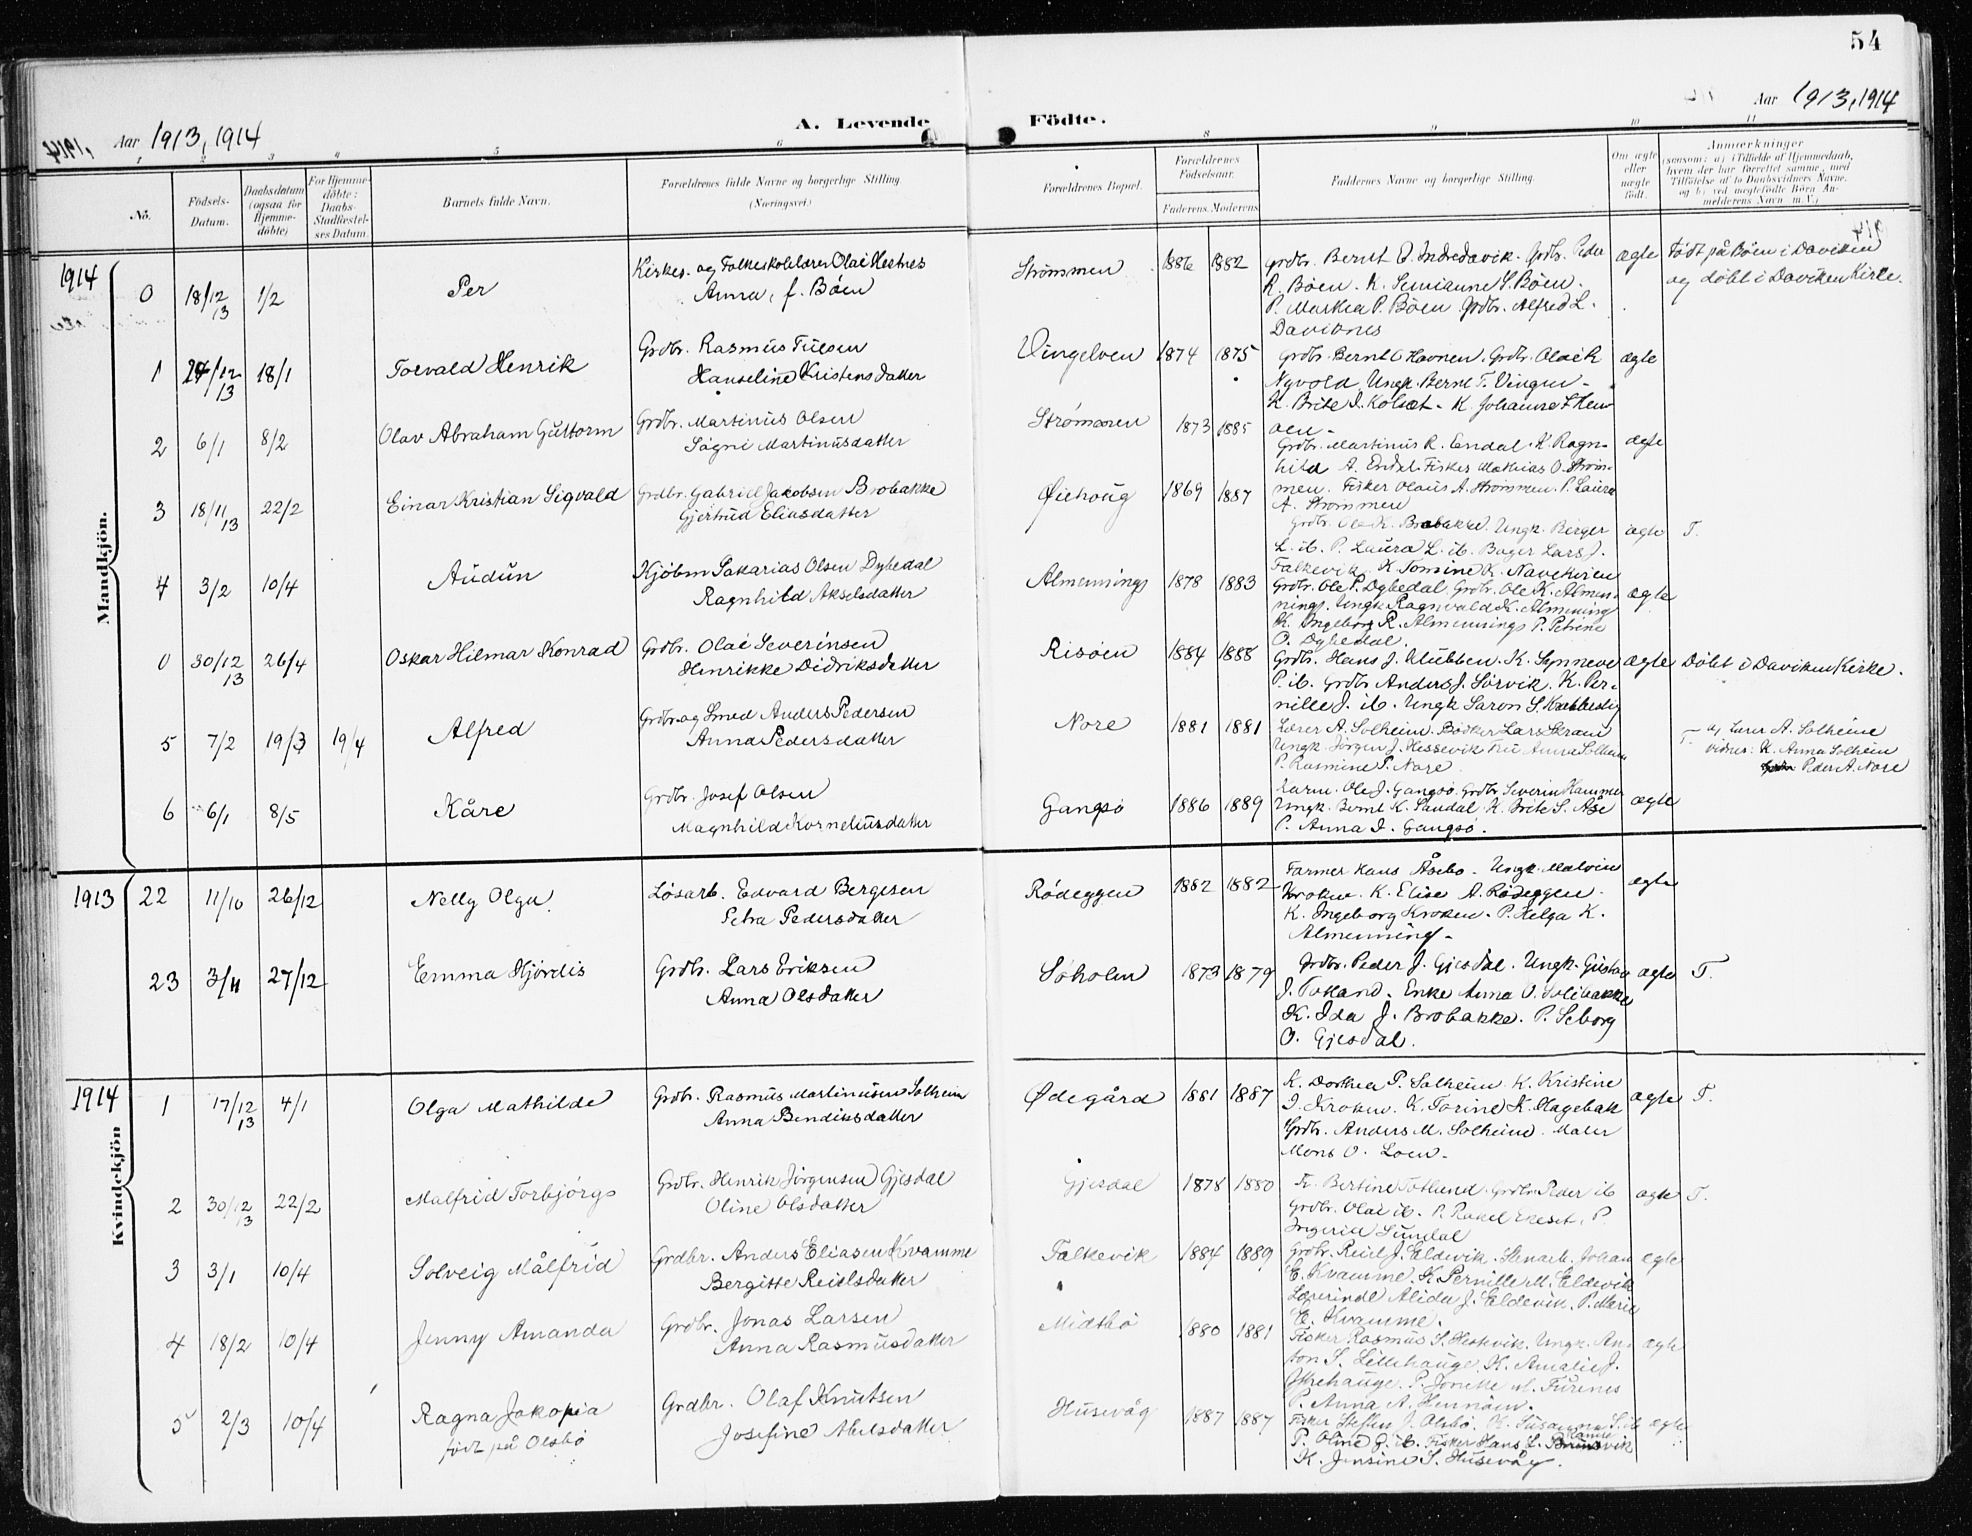 54
Aar 1913, 1914
A. Levende
Födte.
Aar 1913, 1914
1 2 3 4 5 6 8 9 10 11
No.
Födsels-
Datum.
Daabsdatum
(ogsaa for
Hjemme-
döbte)
For Hjemme-
döbte:
Daabs-
Stadfæstel-
ses Datum.
Barnets fulde Navn.
Forældrenes fulde Navne og borgerlige Stilling
(Næringsvei)
Forældrenes Bopæl.
Forældrenes
Födselsaar.
Faderens. Moderens
Faddernes Navne og borgerlige Stilling.
Om ægte
eller
uægte
födt.
Anmærkninger
(saasom: a) i Tilfælde af Hjemmedaab,
hvem der har forrettet samme, med
Tilföielse af to Daabsvidners Navne,
og b) ved uægtefödte Börn An-
melderens Navn m. V.)
1914
Mandkjön.
0 18/12 13 1/2 Per
Kirkes. og Folkeskolelærer Olai Hestnes
Anna, f. Böen
Strømmen 1886 1882
Grdbr. Bernt O. Indredavik. Grdbr. Peder
R. Böen. K. Sevrianne S. Böen.
P. Markea P. Böen Grdbr. Alfred L.
Daviknes
ægte
Født på Böen i Daviken
og døbt i Daviken Kirke.
1 24/12 13 18/1 Torvald Henrik
Grdbr. Rasmus Tulesen
Hanseline Kristensdatter
Vingelven 1874 1875
Grdbr. Bernt O Havnen. Grdbr. Olai R
Nyvold. Ungk. Bernt T. Vingen-
K. Brite I. Kolset. K. Johanne S Hen
öen-
ægte
2 6/1 8/2 Olav Abraham Guttorm
Grdbr. Martinus Olsen
Sögni Martinusdatter
Strømmen 1873 1885
Grdbr. Martinus R. Endal. K. Ragn-
hild A. Endal Fisker Mathias O. Strøm-
men. Fisker Olaus A. Strømmen. P. Laura
A. Strømmen
ægte
3 18/11 13 22/2 Einar Kristian Sigvald
Grdbr. Gabriel Jakobsen Brobakke
Gjertrud Eliasdatter
Øiehoug 1869 1887
Grdbr. Ole K. Brobakke. Ungk. Berger
L. ib. P. Laura L. ib. Bager Lars J.
Falkevik. K. Tomine K. Navekvien
ægte T.
4 3/2 10/4 Audun
Kjöbm Sakarias Olsen Dybedal
Ragnhild Akselsdatter
Almennings 1878 1883
Grdbr. Ole P. Dybedal. Grdbr. Ole K. Almen-
nings. Ungk. Ragnvald K. Almenning
K. Ingeborg R. Almennings P. Petrine
O. Dybedal.
ægte
0 30/12 13 26/4 Oskar Hilmar Konrad
Grdbr. Olai Severinsen
Henrikke Didriksdatter
Risöen 1884 1888
Grdbr. Hans J. Klubben. K. Synneve
P. ib. Grdbr Anders J. Sörvik. K. Per-
nille J. ib. Ungk Saron S.
ægte Döbt i Daviken Kirke.
5 7/2 19/3 19/4 Alfred
Grdbr og Smed Anders Pedersen
Anna Pedersdatter
Nore 1881 1881
Lærer A. Solheim. Bödker Lars Skram
Ungk. Jörgen J. Hessevik Fru Anna Solheim
P. Rasmine P. Nore
T. af Lærer A. Solheim
vidner: K. Anna Solheim
Peder A. Nore
6 6/1 8/5 Kåre
Grdbr. Josef Olsen
Magnhild Korneliusdatter
Gangsö 1886 1889
Karm. Ole J. Gangsö. Grdbr Severin Hammer
Ungk. Bernt K. Sandal. K. Brite S. Åse
P. Anna I. Gangsö.
ægte
1913
22 11/10 26/12 Nelly Olga
Løsarb. Edvard Bergesen
Petra Pedersdatter
Rödeggen 1882 1882
Farmer Hans Åsebo. Ungk. Malvin
Kroken. K. Elise A. Rödeggen.
K. Ingeborg Kroken. P. Helga K.
Almenning-
ægte
23 3/11 27/12 Emma Hjördis
Grdbr. Lars Eriksen
Anna Olsdatter
Søholm 1873 1879
Grdbr. Peder J. Gjesdal. Ungk. Gustav
J. Totland. Enke Anna O. Solibakke
K. Ida J. Brobakke. P. Seborg
O. Gjesdal.
ægte T.
1914
Kvindekjön
1 17/12 13 4/1 Olga Mathilde
Grdbr. Rasmus Martinusen Solheim
Anna Bendiksdatter
Ødegård 1881 1887
K. Dorthea P. Solheim. K. Kristine
I. Kroken. K. Torine K. Hagebak
Grdbr. Anders M. Solheim. Maler
Mons O. Loen.
ægte T.
2 30/12 13 22/2 Malfrid Torbjörgs
Grdbr. Henrik Jörgensen Gjesdal
Oline Olsdatter
Gjesdal 1878 1880
K. Bertine Totland. Grdbr. Peder ib
Grdbr. Olai ib. P. Rakel Ekeset. P.
Ingerid Sundal
ægte T.
3 3/1 10/4 Solveig Målfrid
Grdbr. Anders Eliasen Kvamme
Bergitte Reielsdatter
Falkevik 1884 1889
Grdbr. Reiel J. Eldevik. Stenarb. Johan
E. Kvamme. K. Pernille M. Eldevik
Lærerinde Alida J. Eldevik. P. Marie
E. Kvamme.
ægte
4 18/2 10/4 Jenny Amanda
Grdbr. Jonas Larsen
Anna Rasmusdatter
Midtbö 1880 1881
Fisker Rasmus S. Heskvik. Ungk. An-
ton S. Lillehauge. K. Amalie J.
Ytrehauge. P. Jonette M. Furenes
P. Anna A. Hennöen.
ægte
5 2/3 10/4 Ragna Jakopia
født på Olsbö
Grdbr. Olaf Knutsen
Josefine Abelsdatter
Husevåg 1887 1887
Fisker Steffen J. Olsbö. K. Susanna S. ib
P. Oline J. ib. Fisker Hans L.
K. Jensine S. Husevåg.
ægte